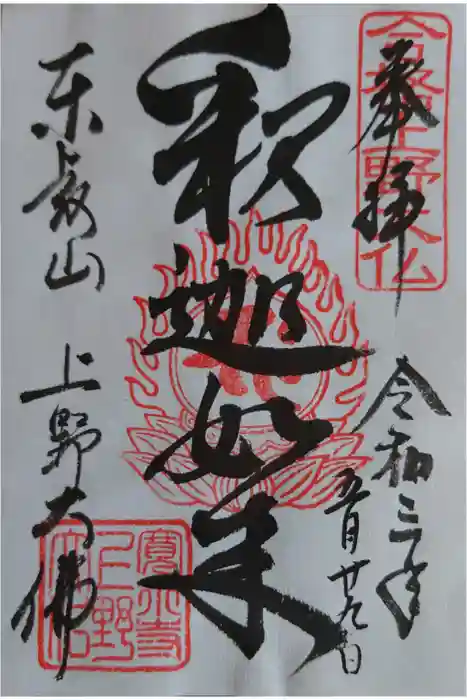 奉拝
令和三年
五月廿九日
釈迦如来
東叡山
上野大佛
上野大仏
寛永寺
上野